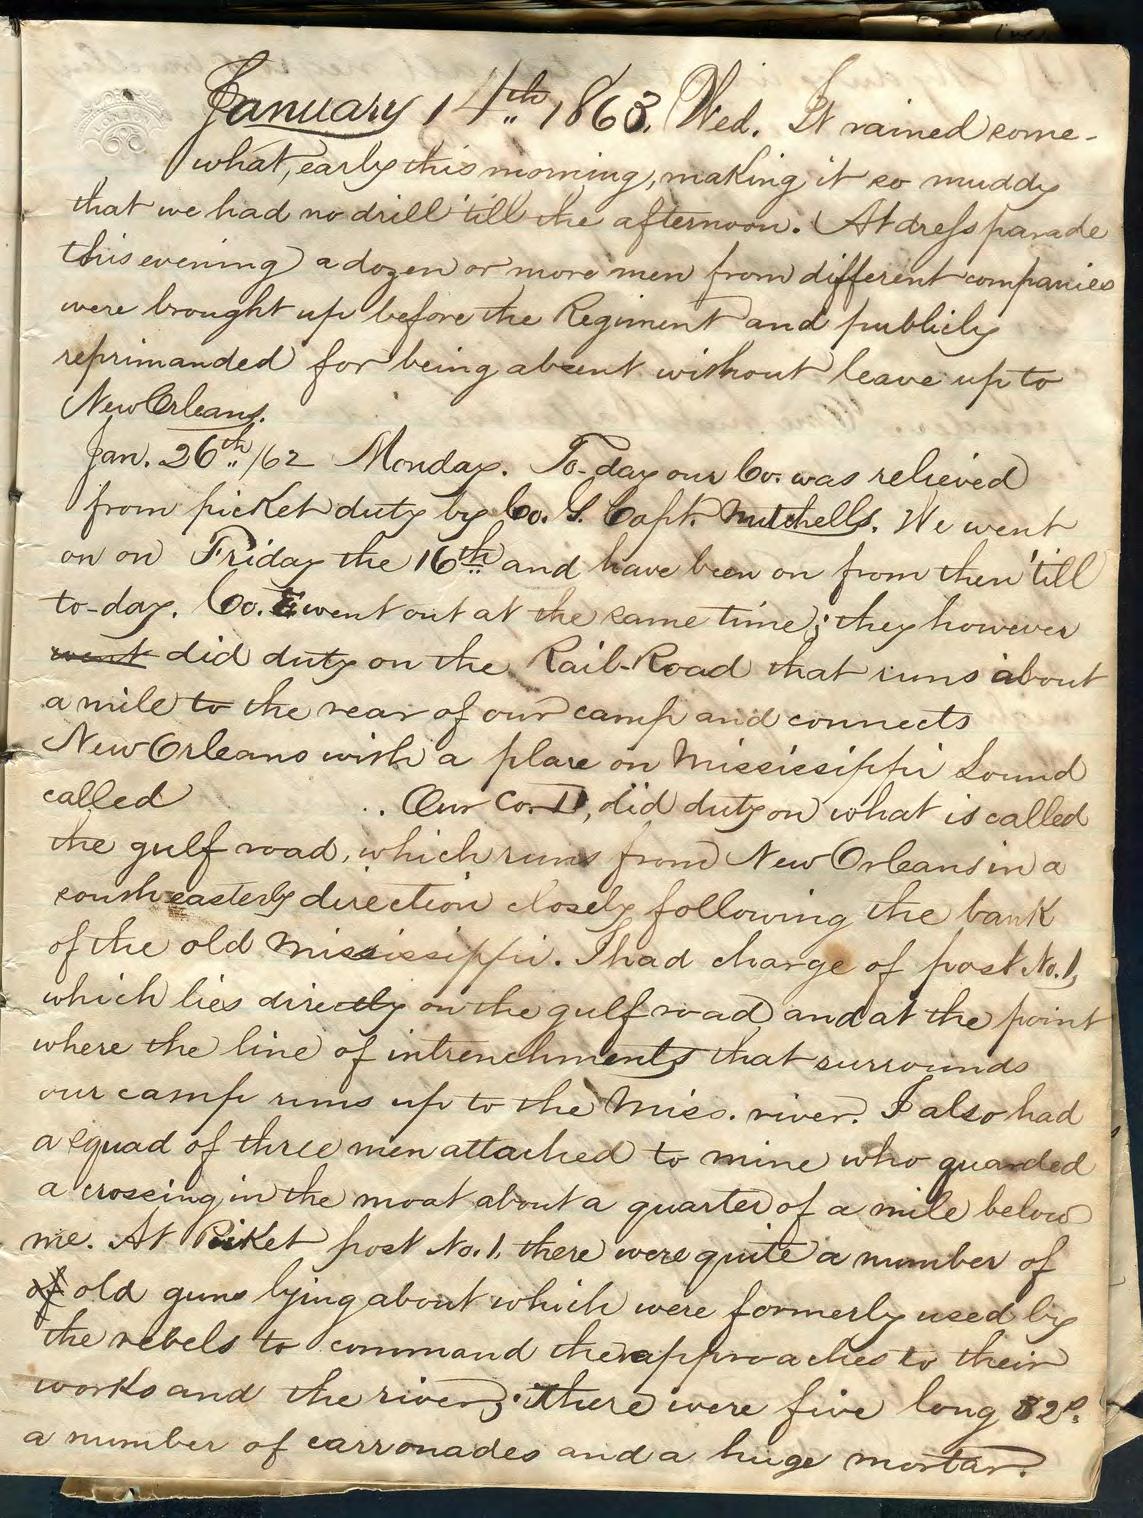 January 14th 1863. Wed. It rained some-
what, early this morning, making it so muddy
that we had no drill 'till the afternoon. (At dress parade
this evening) a dozen or more men from different companies
were brought up before the Regiment and publicly
reprimanded for being absent without leave up to
New Orleans.
Jan. 26th /62 Monday. To-day our Co. was relieved
from picket duty by Co. G. Capt. Mitchells. We went
on on Friday the 16th and have been on from then 'till
to-day. Co. E went out at the same time; they however
went did duty on the Rail-Road that runs about
a mile to the rear of our camp and connects
New Orleans with a place on Mississippi Sound
called . Our Co. D, did duty on what is called
the gulf road, which runs from New Orleans in a
south easterly direction closely following the bank
of the old Mississippi. I had charge of post No. 1,
which lies directly on the gulf road and at the point
where the line of intrenchments that surrounds
our camp runs up to the Miss. river. I also had
a squad of three men attached to mine who guarded
a crossing in the moat about a quarter of a mile below
me. At Picket post No. 1. there were quite a number of
of old guns lying about which were formerly used by
the rebels to command the approaches to their
works and the river; there were five long 32p.
a number of carronades and a huge mortar.